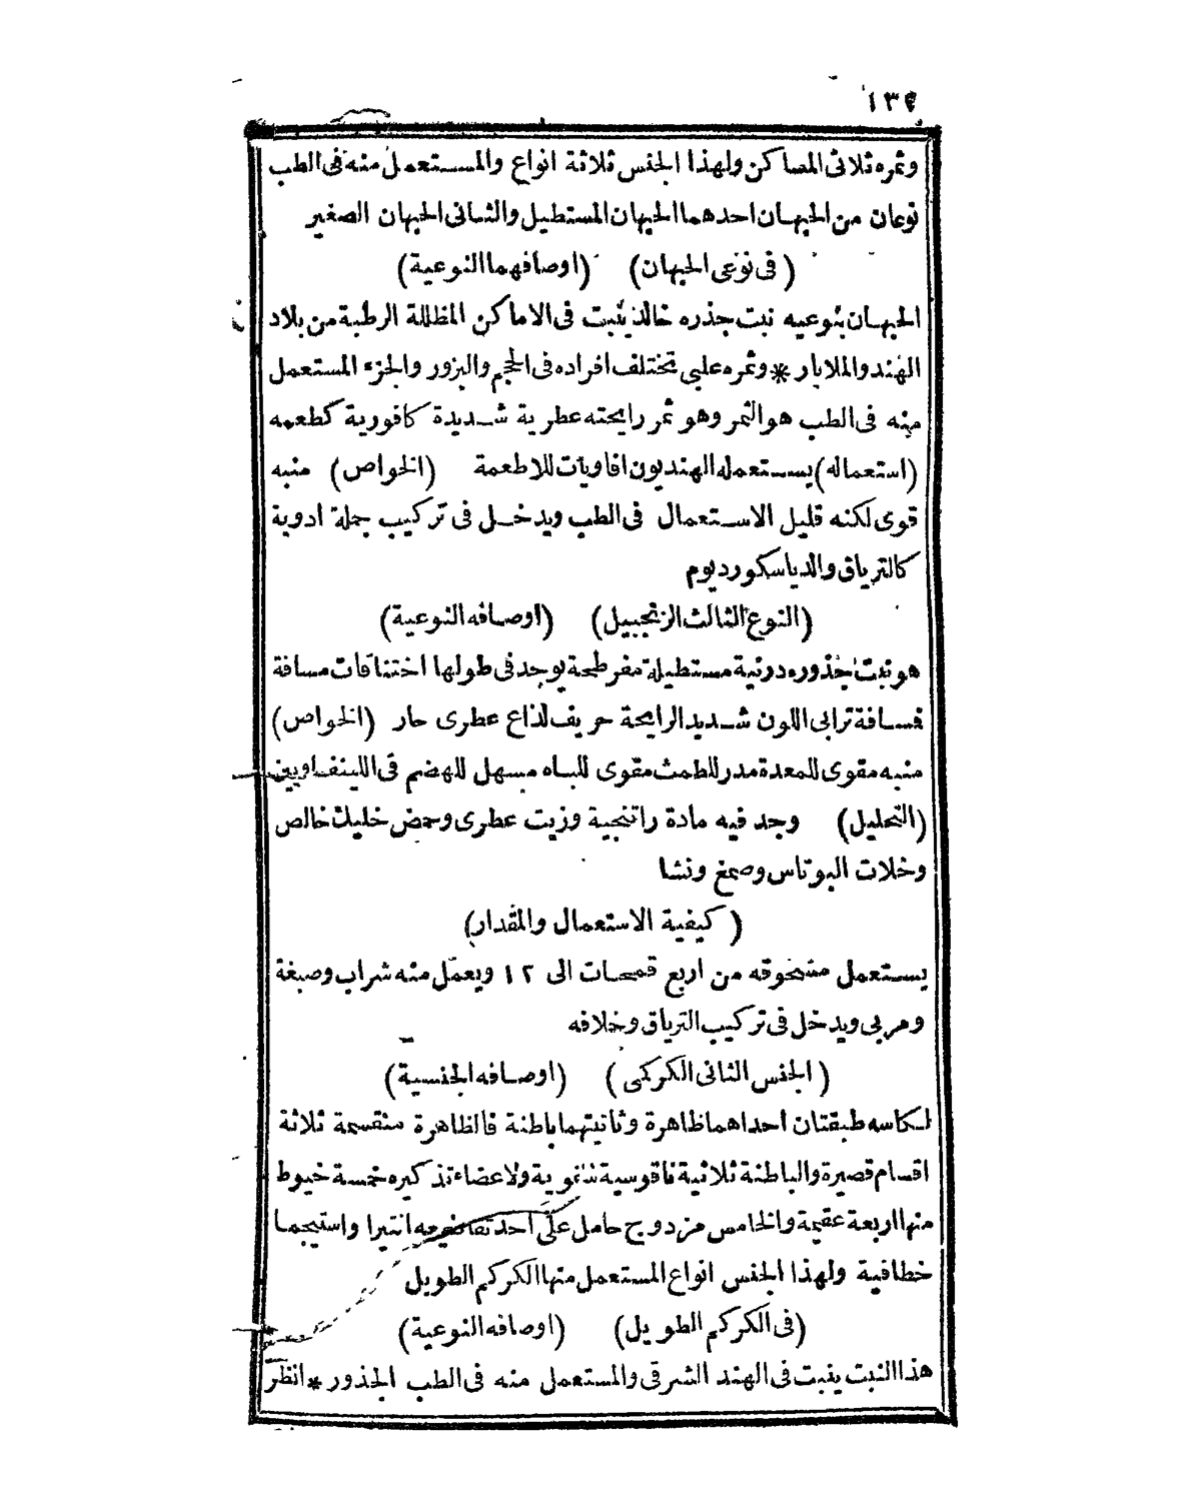 ١٣٤
وثمره ثلاثى المساكن ولهذا الجنس ثلاثة انواع والمستعمل منه فى الطب
نوعان من الحبهان احدهما الحبهان المستطيل والثانى الحبهان الصغير
(فى نوعى الحبهان) (اوصافهما النوعية)
الحبهان بنوعيه نبت جذره خالد ينبت فى الاماكن المظللة الرطبة من بلاد
الهند والملابار * وثمره علبى تختلف افراده فى الحجم والبزور والجزء المستعمل
منه فى الطب هو الثمر وهو ثمر رايحته عطرية شديدة كافورية كطعمه
(استعماله) يستعمله الهنديون افاويات للاطعمة (الخواص) منبه
قوى لكنه قليل الاستعمال فى الطب ويدخل فى تركيب جملة ادوية
كالترياق والدياسكورديوم
(النوع الثالث الزنجبيل) (اوصافه النوعية)
هو نبت جذوره درنية مستطيلة مفرطحة يوجد فى طولها اختناقات مسافة
فسافة ترابى اللون شديد الرايحة حريف لذاع عطرى حار (الخواص)
منبه مقوى للمعدة مدر للطمث مقوى للباه مسهل للهضم فى اللينفاويين
(التحليل) وجد فيه مادة راتنجية وزيت عطرى وحمض خليك خالص
وخلات البوتاس وصمغ ونشا
(كيفية الاستعمال والمقدار)
يستعمل مسحوقه من اربع قمحات الى ١٢ ويعمل منه شراب وصبغة
ومربى ويدخل فى تركيب الترياق وخلافه
(الجنس الثانى الكركمى) (اوصافه الجنسية)
لكاسه طبقتان احداهما ظاهرة وثانيتهما باطنة فالظاهرة منقسمة ثلاثة
اقسام قصيرة والباطنة ثلاثية ناقوسية ولاعضاء تذكيره خمسة خيوط
منها اربعة عقيمة والخامس مزدوج حامل على احد تفاضيعه انتيرا واستيجما
خطافية ولهذا الجنس انواع المستعمل منها الكركم الطويل
(فى الكركم الطويل) (اوصافه النوعية)
هذا النبت ينبت فى الهند الشرقى والمستعمل منه فى الطب الجذور * انظر